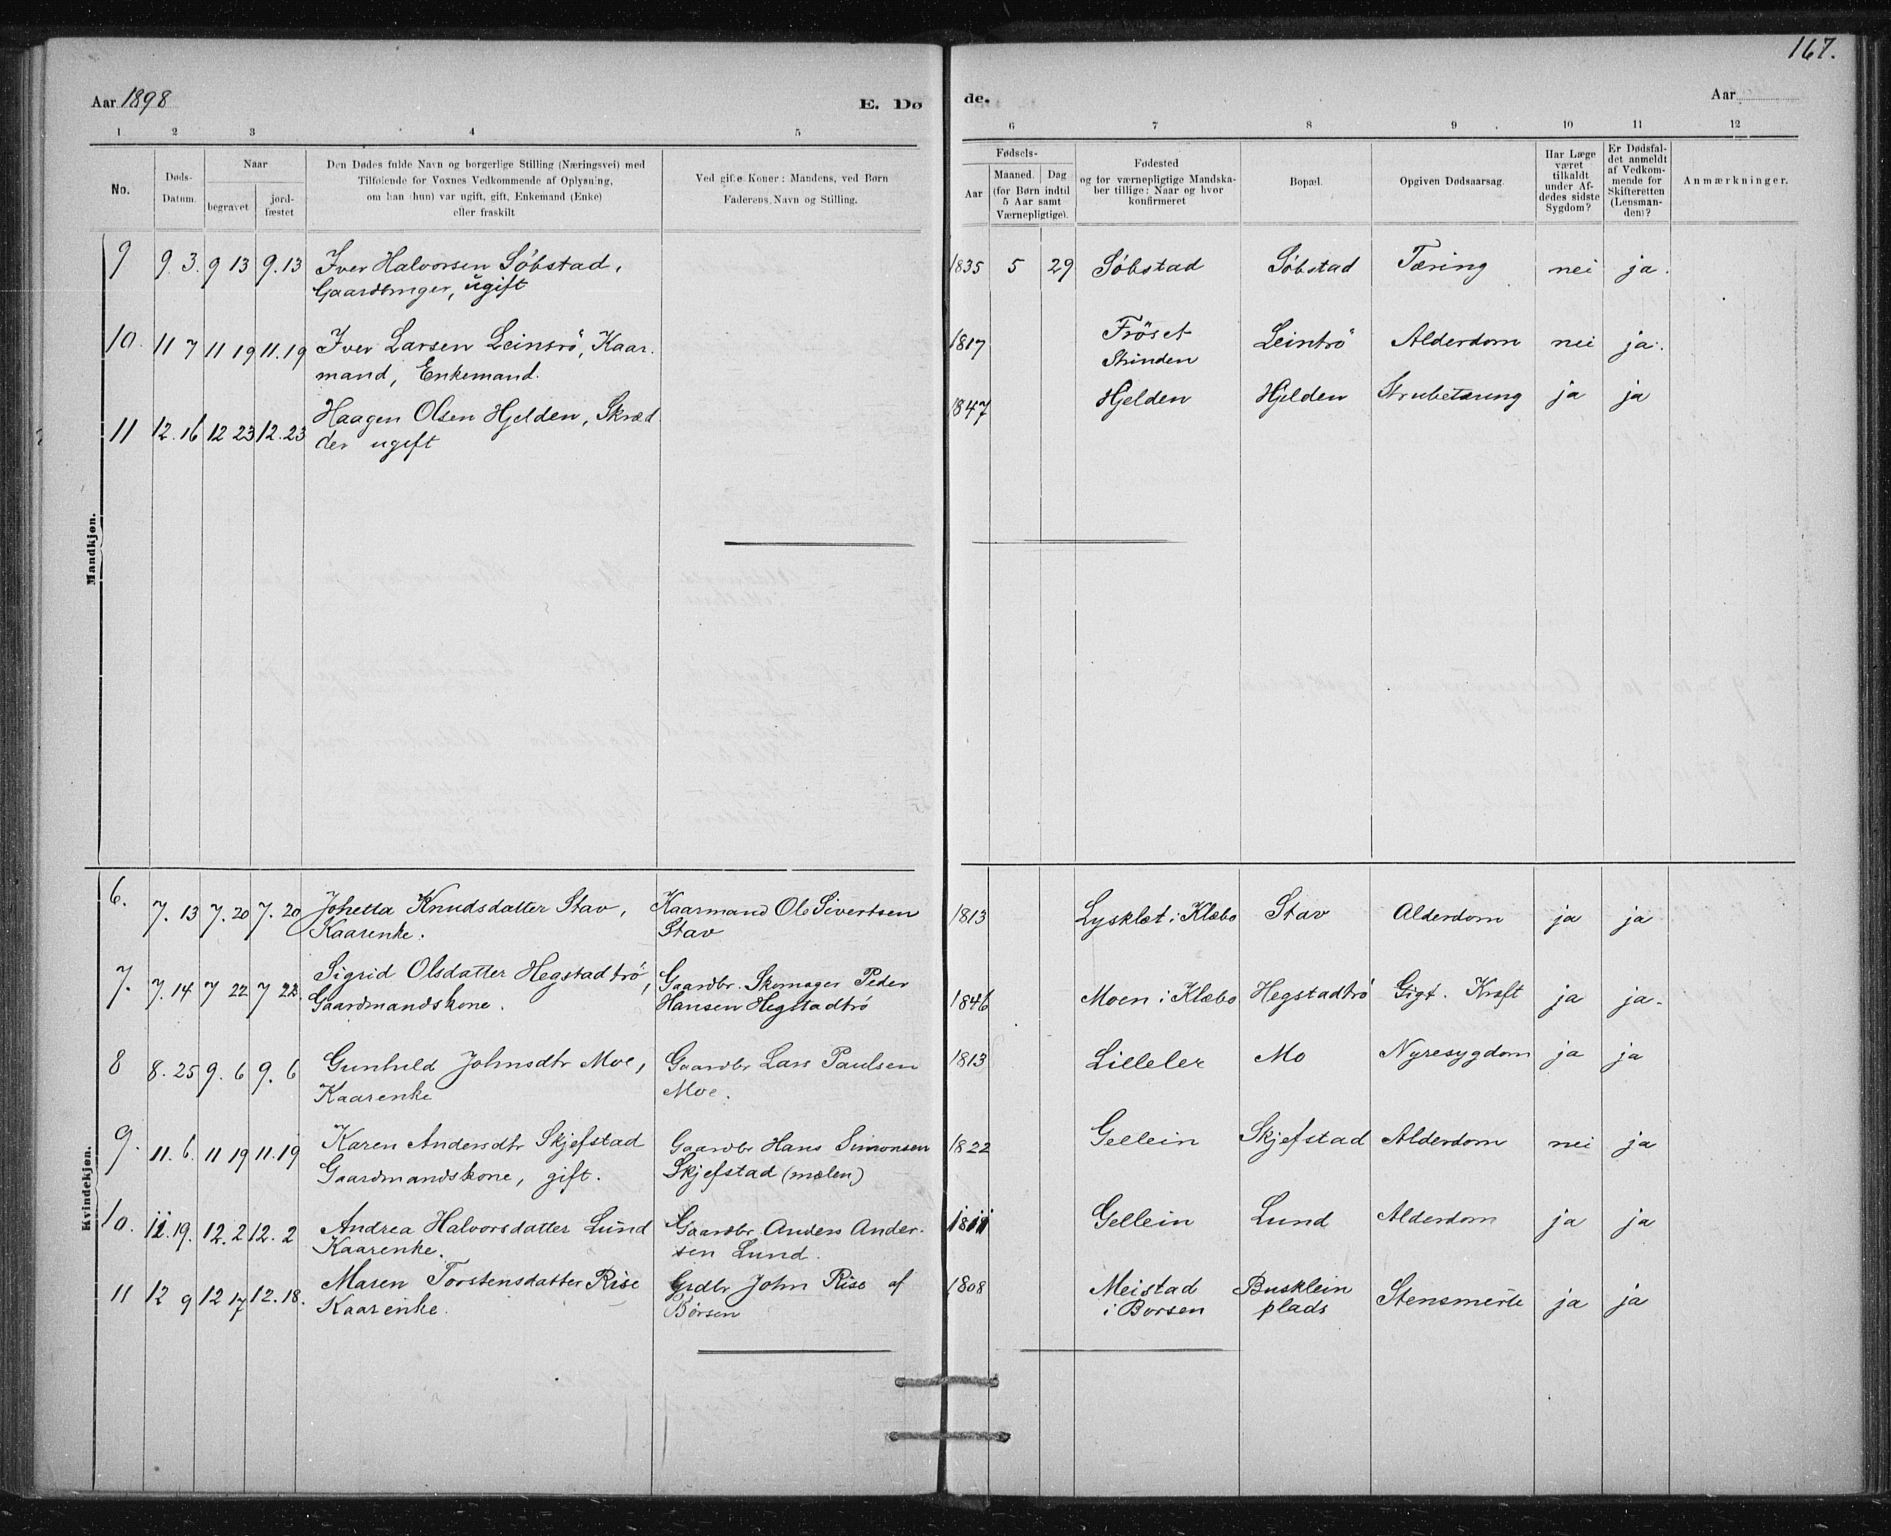 167.
Aar 1898
E. Dø
de.
Aar
1 2 3 4 5
6 7 8 9 10 11 12
No.
Døds-
Datum.
Naar
begravet
jord-
fæstet
Den Dødes fulde Navn og borgerlige Stilling (Næringsvei) med
Tilføiende for Voxnes Vedkommende af Oplysning,
om han (hun) var ugift, gift, Enkemand (Enke)
eller fraskilt
Ved gifte Koner: Mandens, ved Børn
Faderens Navn og Stilling.
Fødsels-
Aar
Maaned. Dag
(for Børn indtil
5 Aar samt
Værnepligtige).
Fødested
og for værnepligtige Mandska-
ber tillige: Naar og hvor
konfirmeret
Bopæl.
Opgiven Dødsaarsag.
Har Læge
været
tilkaldt
under Af-
dødes sidste
Sygdom?
Er Dødsfal-
det anmeldt
af Vedkom-
mende for
Skifteretten
(Lensman-
den)?
Anmærkninger.
Mandkjøn.
9 9 3. 9 13 9.13 Iver Halvorsen Söbstad, 1835 5 29 Söbstad Söbstad Tæring nei ja.
Gaardbruger, ugift
10. 11 7 11 19 11.19 Iver Larsen Leinsrö, Kaar- 1817 Fröset Leintrö Alderdom nei ja.
mand, Enkemand. Strinden
11 12.16 12 23 12.23 Haagen Olsen Hjelden, Skræd 1847 Hjelden Hjelden Strubetæring ja ja
der ugift
Kvindekjøn.
6. 7. 13 7. 20 7. 20 Johetta Knudsdatter Stav, Kaarmand Ole Sivertsen 1813 Lysklet i Klæbo Stav Alderdom ja ja
Kaarenke. Stav
7. 7. 14 7 22 7 22. Sigrid Olsdatter Hegstadtrö, Gaardbr. Skomager Peder 1846 Moen i Klæbo Hegstadtrö Gigt. Kræft ja ja.
Gaardmandskone. Hansen Hegstadtrö
8 8. 25 9. 6 9. 6 Gunhild Johnsdtr Moe, Gaardbr Lars Paulsen 1813 Lilleler Mo Nyresygdom ja ja
Kaarenke Moe.
9. 11. 6. 11 19 11.19 Karen Andersdtr Skjefstad Gaardbr Hans Simonsen 1822 Gellein Skjefstad Alderdom nei ja
Gaardmandskone, gift. Skjefstad (mælen)
10. 11. 19. 12. 2 12. 2 Andrea Halvorsdatter Lund Gaardbr Anders Ander- 1811 Gellein Lund Alderdom ja ja
Kaarenke. sen Lund.
11 12 9 12 17 12. 18. Maren Torstensdatter Rise Grdbr John Rise af 1808 Meistad Busklein Stensmerte ja ja
Kaarenke. Börsen i Borsen plads